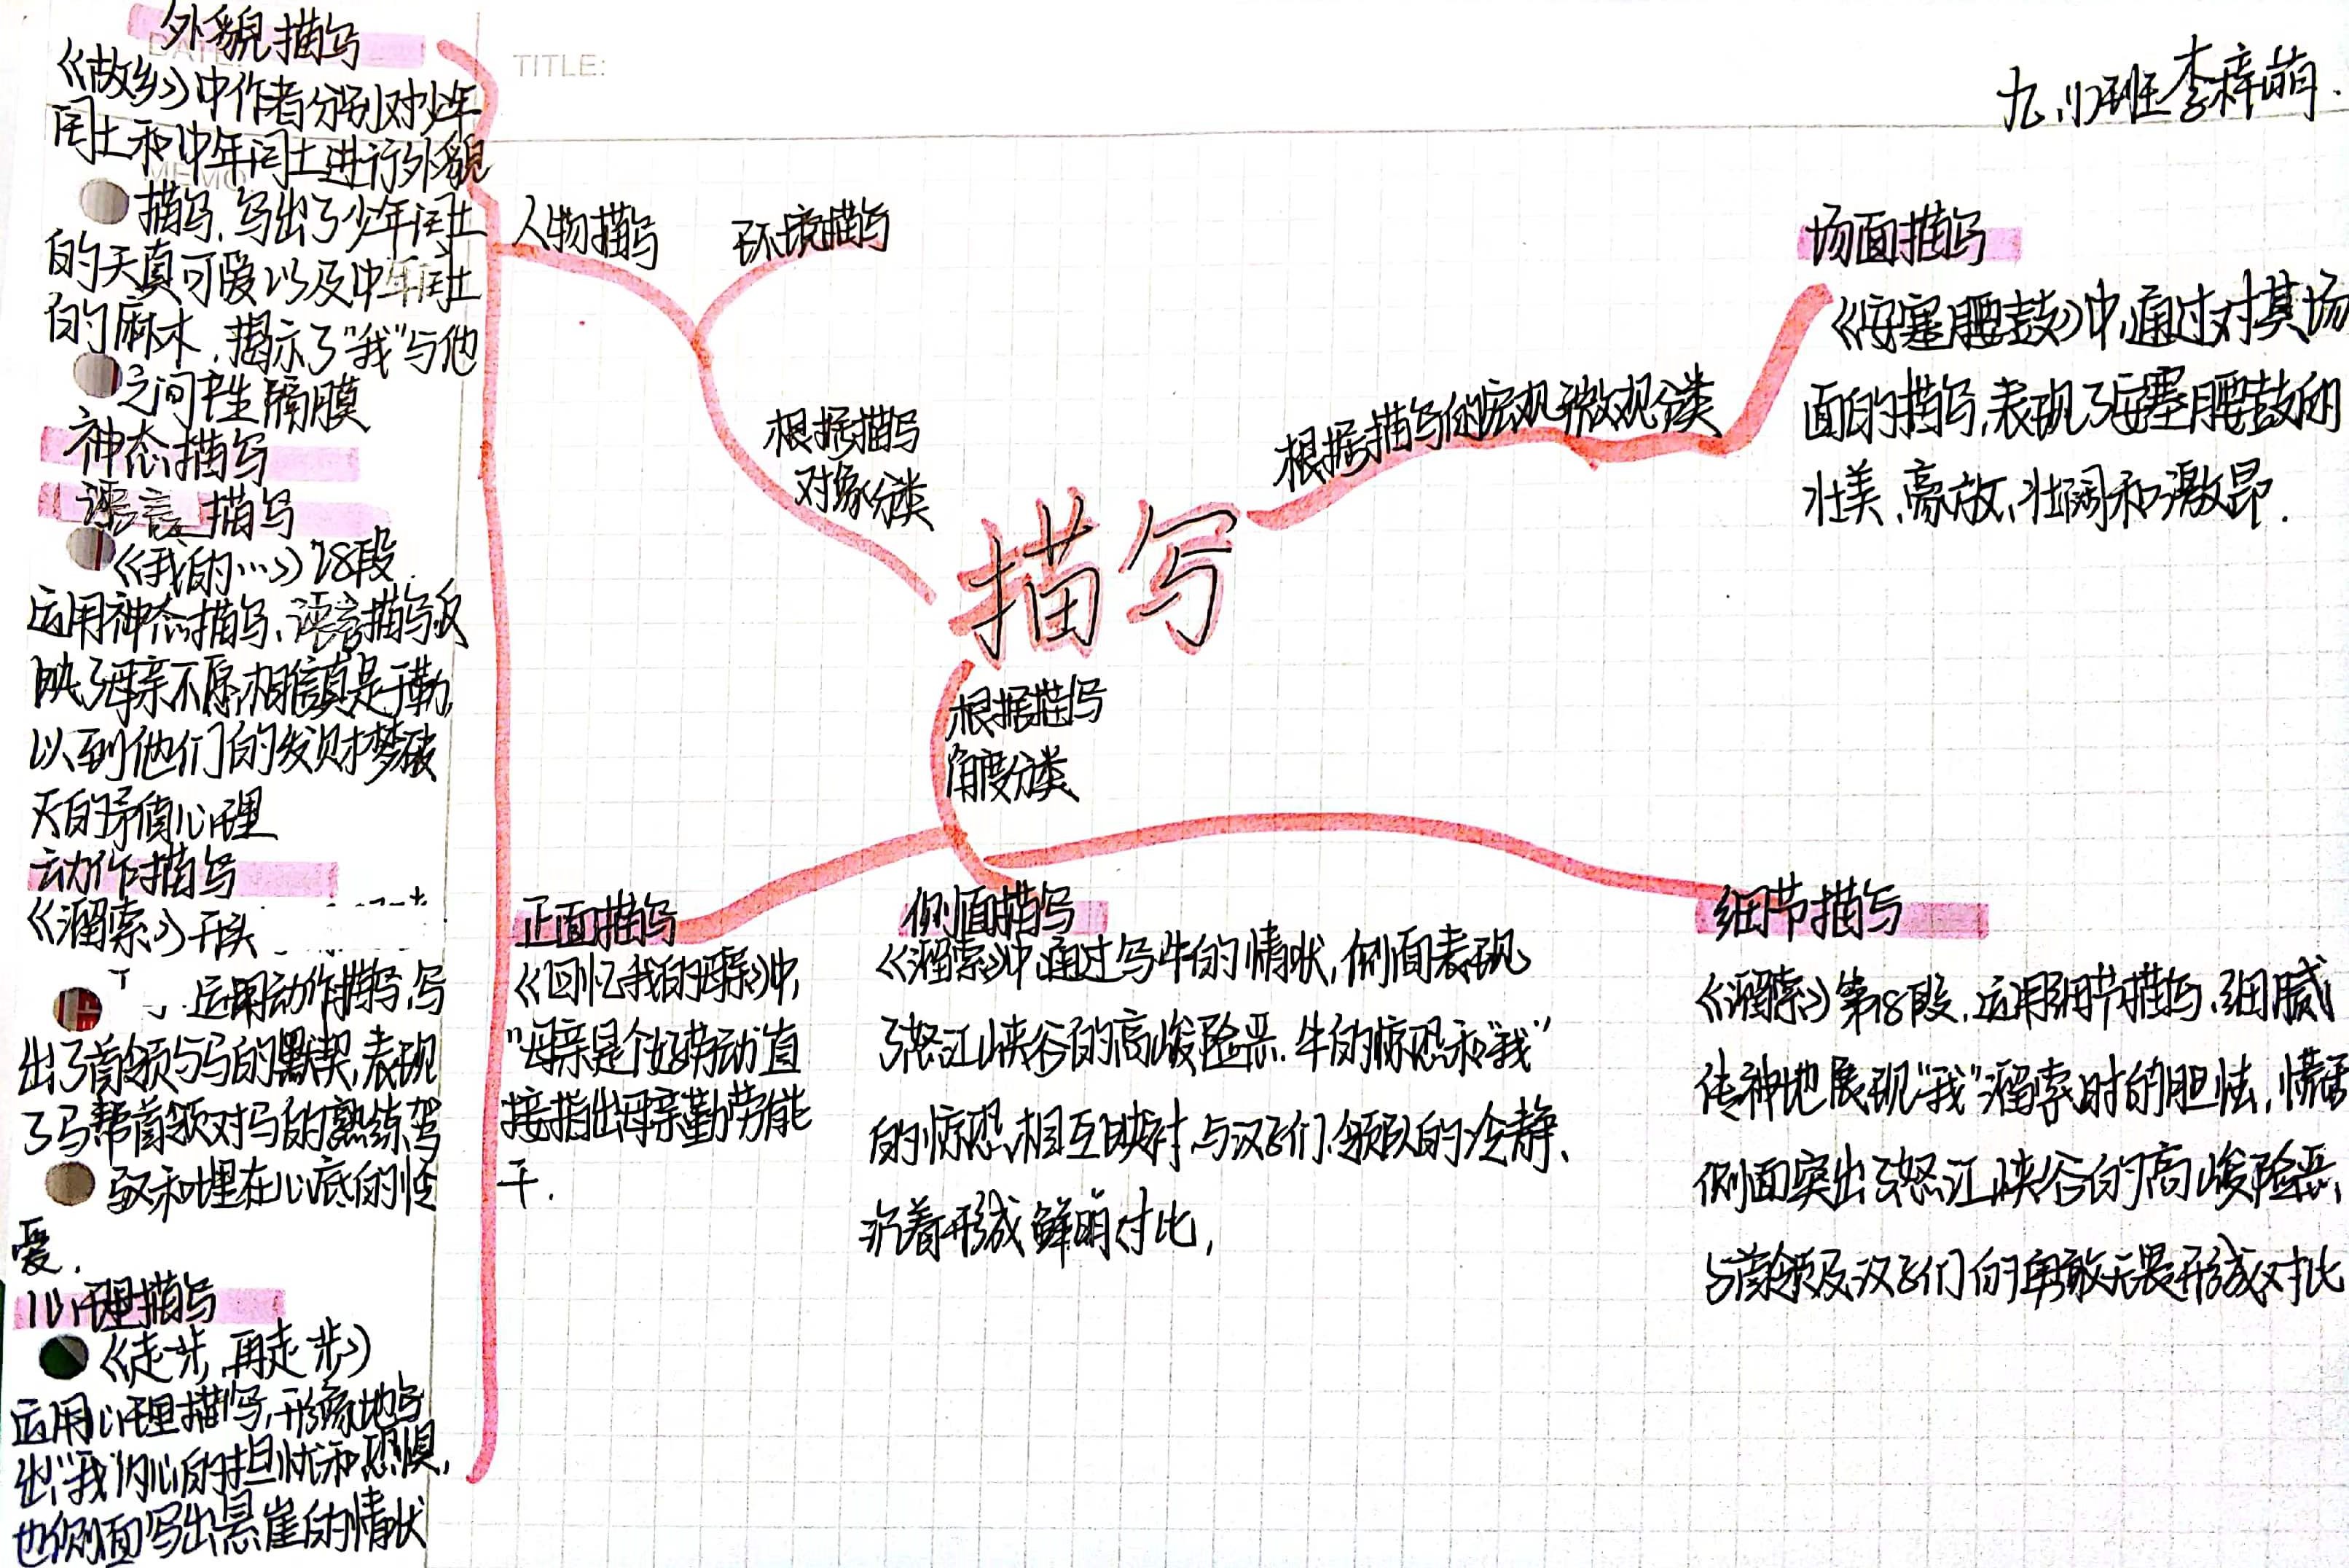 外貌描写
《故乡》中作者分别对少年
闰土和中年闰土进行外貌
描写,写出了少年闰土
的天真可爱以及中年闰土
的麻木,揭示了"我"与他
之间产生隔膜
神态描写
语言描写
《我的…》28段
运用神态描写、语言描写反
映了母亲不愿相信真是于勒,
以到他们的发财梦破
灭的矛盾心理
动作描写
《溜索》开头
运用动作描写,写
出了首领与马的默契,表现
了马帮首领对马的熟练驾
驭和埋在心底的怪
爱.
心理描写
《走一步,再走一步》
运用心理描写,形象地写
出"我"内心的担忧和恐惧,
也侧面写出悬崖的情状
TITLE:
MEMO
九.(1)班李梓萌.
人物描写
环境描写
根据描写
对象分类
描写
根据描写的宏观微观分类
场面描写
《安塞腰鼓》中,通过对其场
面的描写,表现了安塞腰鼓的
壮美、豪放、壮阔和激昂.
根据描写
角度分类
正面描写
《回忆我的母亲》中,
"母亲是个好劳动"直
接指出母亲勤劳能
干.
侧面描写
《溜索》中通过写牛的情状,侧面表现
了怒江峡谷的高峻险恶.牛的惊恐和"我"
的惊恐相互映衬,与汉子们、领队的冷静、
沉着形成鲜明对比,
细节描写
《溜索》第18段,运用细节描写,细腻
传神地展现"我"溜索时的胆怯,情态
侧面突出了怒江峡谷的高峻险恶,
与首领及汉子们的勇敢无畏形成对比